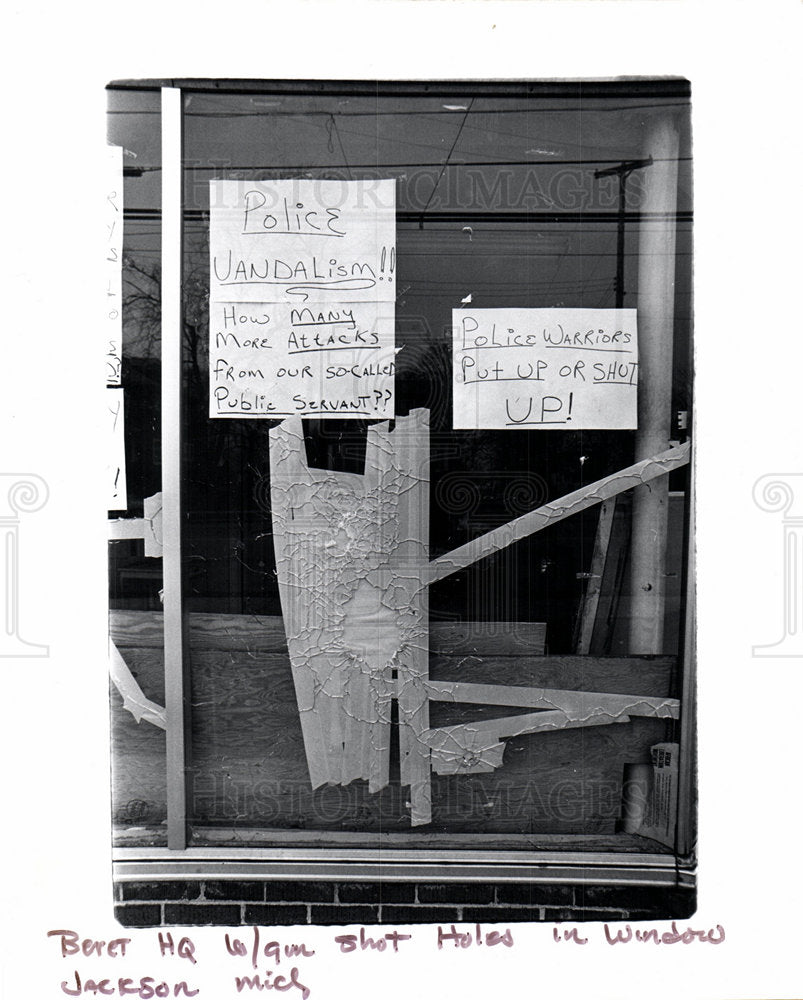 Police
VANDALism!!
How MANY
MORE ATTACKS
FROM OUR SO-CALLED
Public SERVANT??
POLICE WARRIORS
PUT UP OR SHUT
UP!
HISTORIC IMAGES
HISTORIC IMAGES
Beret HQ w/gun shot Holes in Window
JACKSON mich